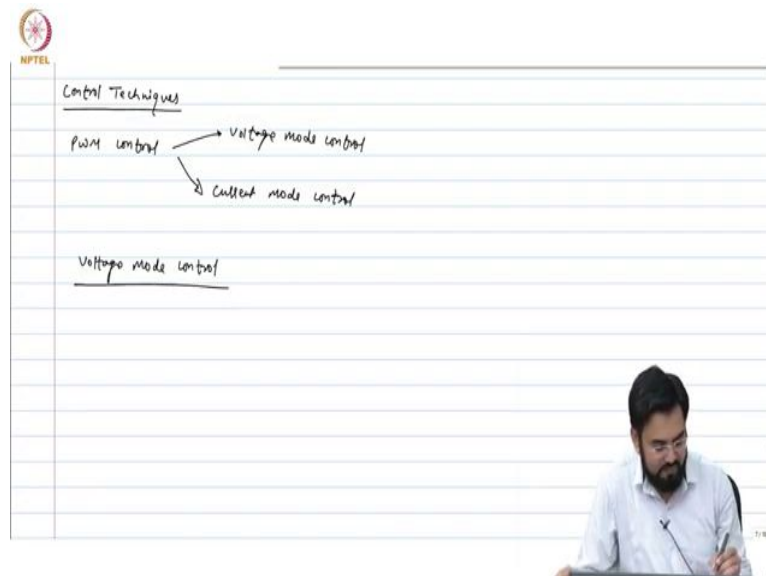 NPTEL
Control Techniques
PWM control
Voltage mode control
Current mode control
Voltage mode control